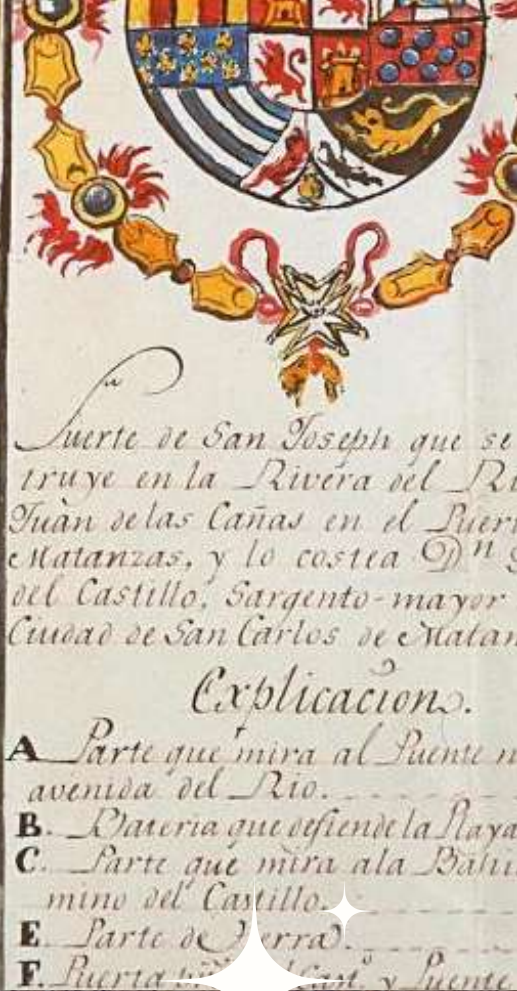 Fuerte de San Joseph que se
truye en la Rivera del Ri
Juàn de las Cañas en el Puer
Matanzas, y lo costea Dn
del Castillo, Sargento-mayor
Ciudad de San Carlos de Matan
Explicacion.
A Parte que mira al Puente n
avenida del Rio.
B. Bateria que defiende la Playa
C. Parte que mira ala Bahi
mino del Castillo.
E. Parte de tierra.
F. Puerta Cast.o y Puente